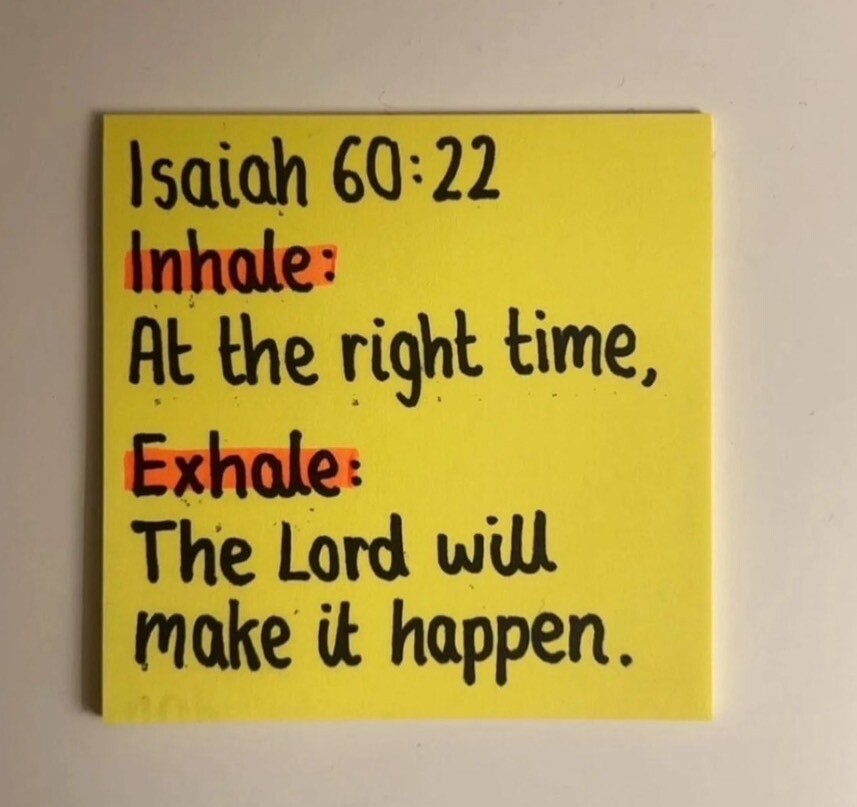 Isaiah 60:22
Inhale:
At the right time,
Exhale:
The Lord will
make it happen.